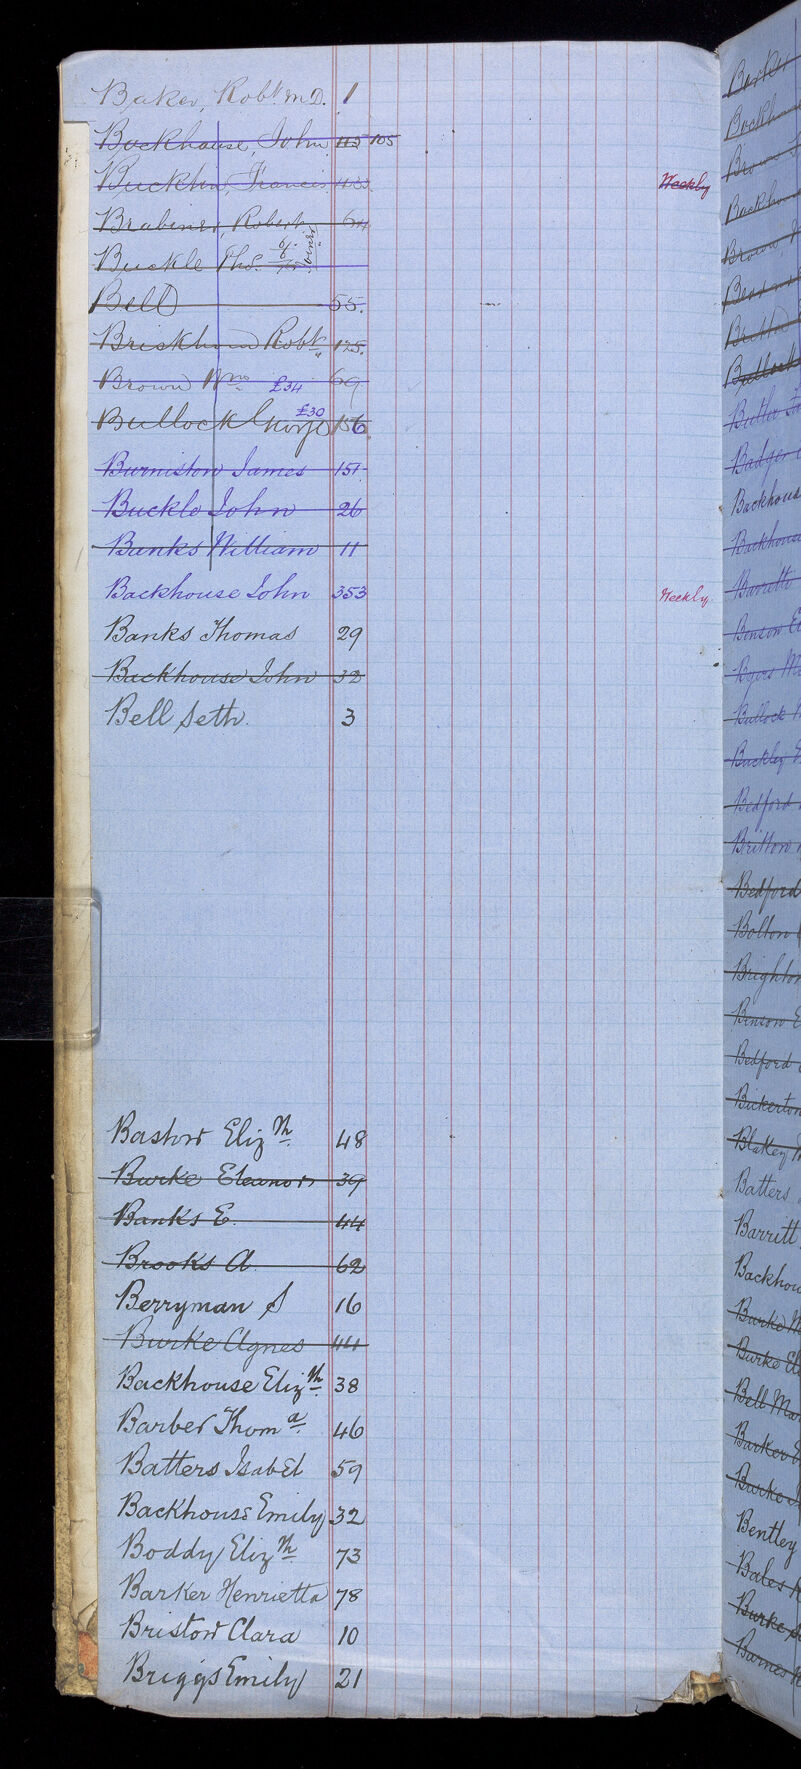 Baker, Robt. M.D. 1
Backhouse, John 115 105
Francis Weekly
Brabiner, Robert 64
Buckle Thos.
Bell 55.
Robt. 125.
Brown Wm. £34 69
Bullock George £30 156
Burniston James 151
Buckle John 26
Banks William 11
Backhouse John 353 Weekly
Banks Thomas 29
Backhouse John 32
Bell Seth. 3
Bastow Elizth. 48
Burke Eleanor 39
Banks E. 44
Brooks A. 62
Berryman S 16
Burke Agnes 44
Backhouse Elizth. 38
Barber Thoma. 46
Batters Isabel 59
Backhouse Emily 32
Boddy Elizth. 73
Barker Henrietta 78
Bristow Clara 10
Briggs Emily 21
Barker
Backhou
Brown
Backhou
Brown
Bullock
Butler
Badger
Backhous
Backhouse
Barritt
Benson
Byers
Bullock
Buckley
Bedford
Britton
Bedford
Bolton
Brighton
Benson E
Bedford
Bickerton
Blakey
Batters
Barritt
Backhou
Burke M
Burke El
Bell Mar
Barker
Burke
Bentley
Bales
Burke
Barnes